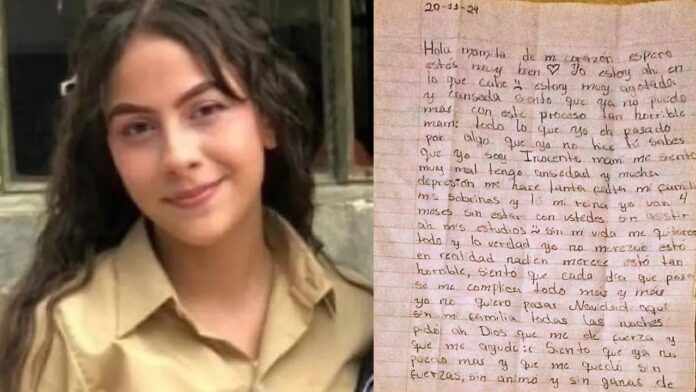 20-11-24
Hola mamita de mi corazon espero
estés muy bien ♡ Yo estoy ahi en
lo que cabe estoy muy agotada
y cansada siento que ya no puedo
más con este proceso tan horrible
mami todo lo que yo eh pasado
por algo que yo no hice tú sabes
que yo soy Inocente mami me siento
muy mal tengo ansiedad y mucha
depresión me hace tanta falta mi familia
mis sobrinas y ti mi reina ya van 4
meses sin estar con ustedes sin asistir
ah mis estudios sin mi vida me quitaron
todo y la verdad yo no merezco esto
en realidad nadien merece esto tan
horrible, siento que cada día que pasa
se me complica todo más y más
ya no quiero pasar Navidad aqui
sin mi familia todas las noches
pido ah Dios que me de fuerza y
que me ayude: Siento que ya no
puedo mas y que me quedo sin
fuerzas, sin animo y sin ganas de